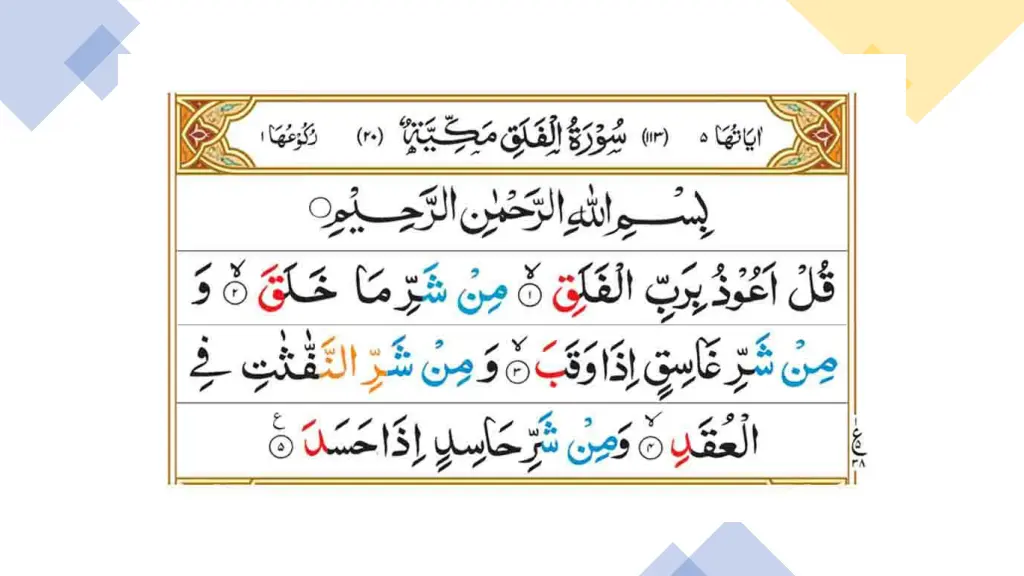 اٰيَاتُهَا ٥ (١١٣) سُوْرَةُ الْفَلَقِ مَكِّيَّةٌ (٢٠) رُكُوْعُهَا ١
بِسْمِ اللّٰهِ الرَّحْمٰنِ الرَّحِيْمِ
قُلْ اَعُوْذُ بِرَبِّ الْفَلَقِ ۙ﴿١﴾ مِنْ شَرِّ مَا خَلَقَ ۙ﴿٢﴾ وَ
مِنْ شَرِّ غَاسِقٍ اِذَا وَقَبَ ۙ﴿٣﴾ وَ مِنْ شَرِّ النَّفّٰثٰتِ فِي
الْعُقَدِ ۙ﴿٤﴾ وَمِنْ شَرِّ حَاسِدٍ اِذَا حَسَدَ ﴿٥﴾ ع
ع
٣٨